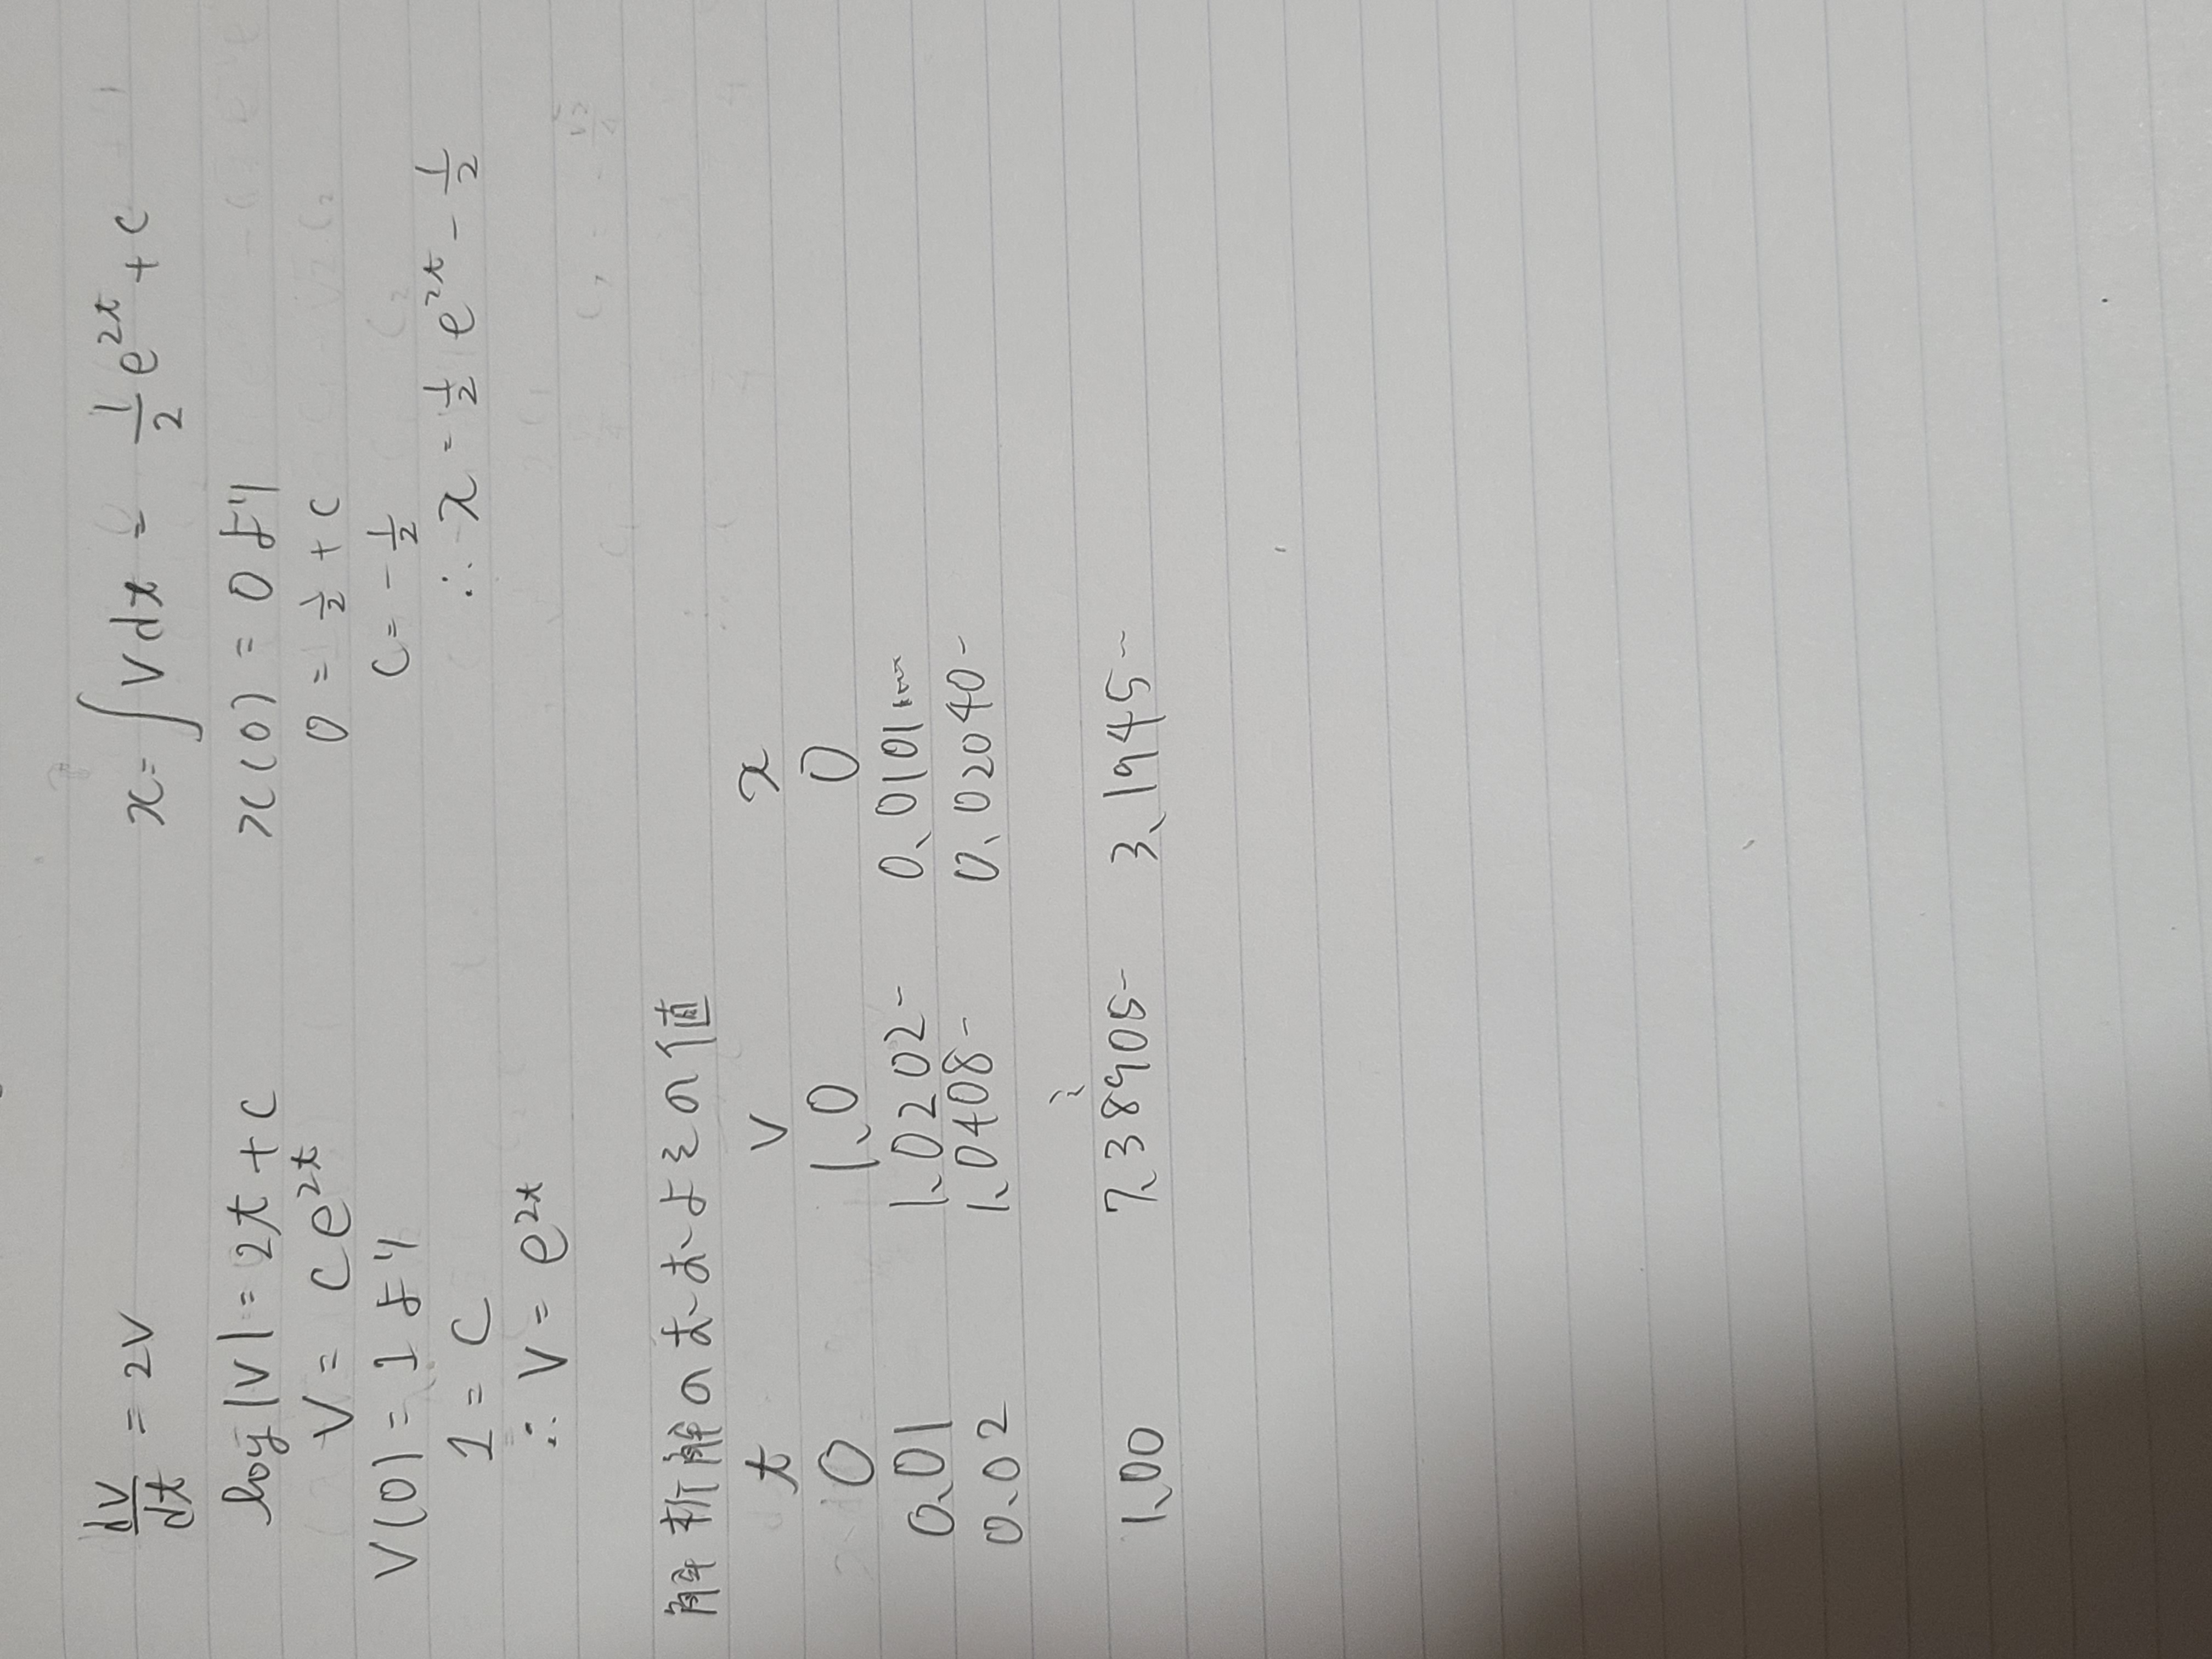 dv/dt = 2v
log|v| = 2t + c
v = ce^2t
v(0) = 1 より
1 = c
∴ v = e^2t
x = ∫v dt = 1/2 e^2t + c
x(0) = 0 より
0 = 1/2 + c
c = -1/2
∴ x = 1/2 e^2t - 1/2
解析解のおおよその値
t v x
0 1.0 0
0.01 1.0202- 0.0101....
0.02 1.0408- 0.02040-
⋮
1.00 7.38905- 3.1945-